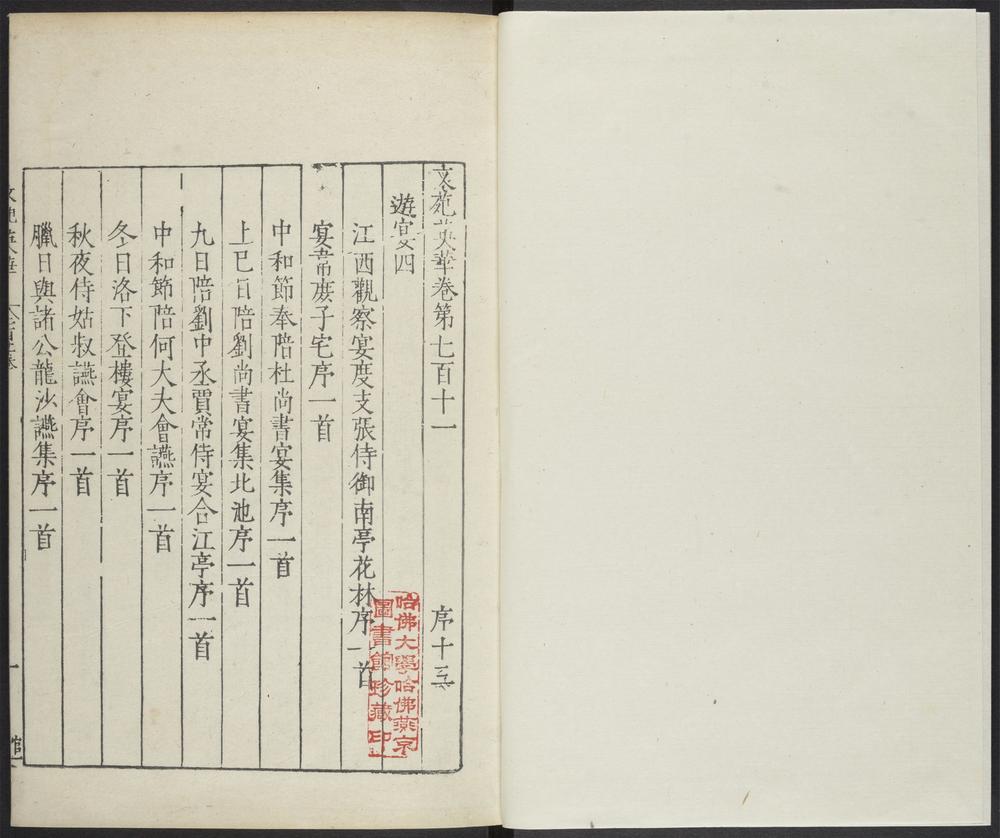 文苑英華卷第七百十一
序十三
遊宴四
江西觀察宴度支張侍御南亭花林序一首
宴韋庶子宅序一首
中和節奉陪杜尚書宴集序一首
上巳日陪劉尚書宴集北池序一首
九日陪劉中丞賈常侍宴合江亭序一首
中和節陪何大夫會讌序一首
冬日洛下登樓宴序一首
秋夜侍姑叔讌會序一首
臘日與諸公龍沙讌集序一首
哈佛大學哈佛燕京
圖書館珍藏印
一